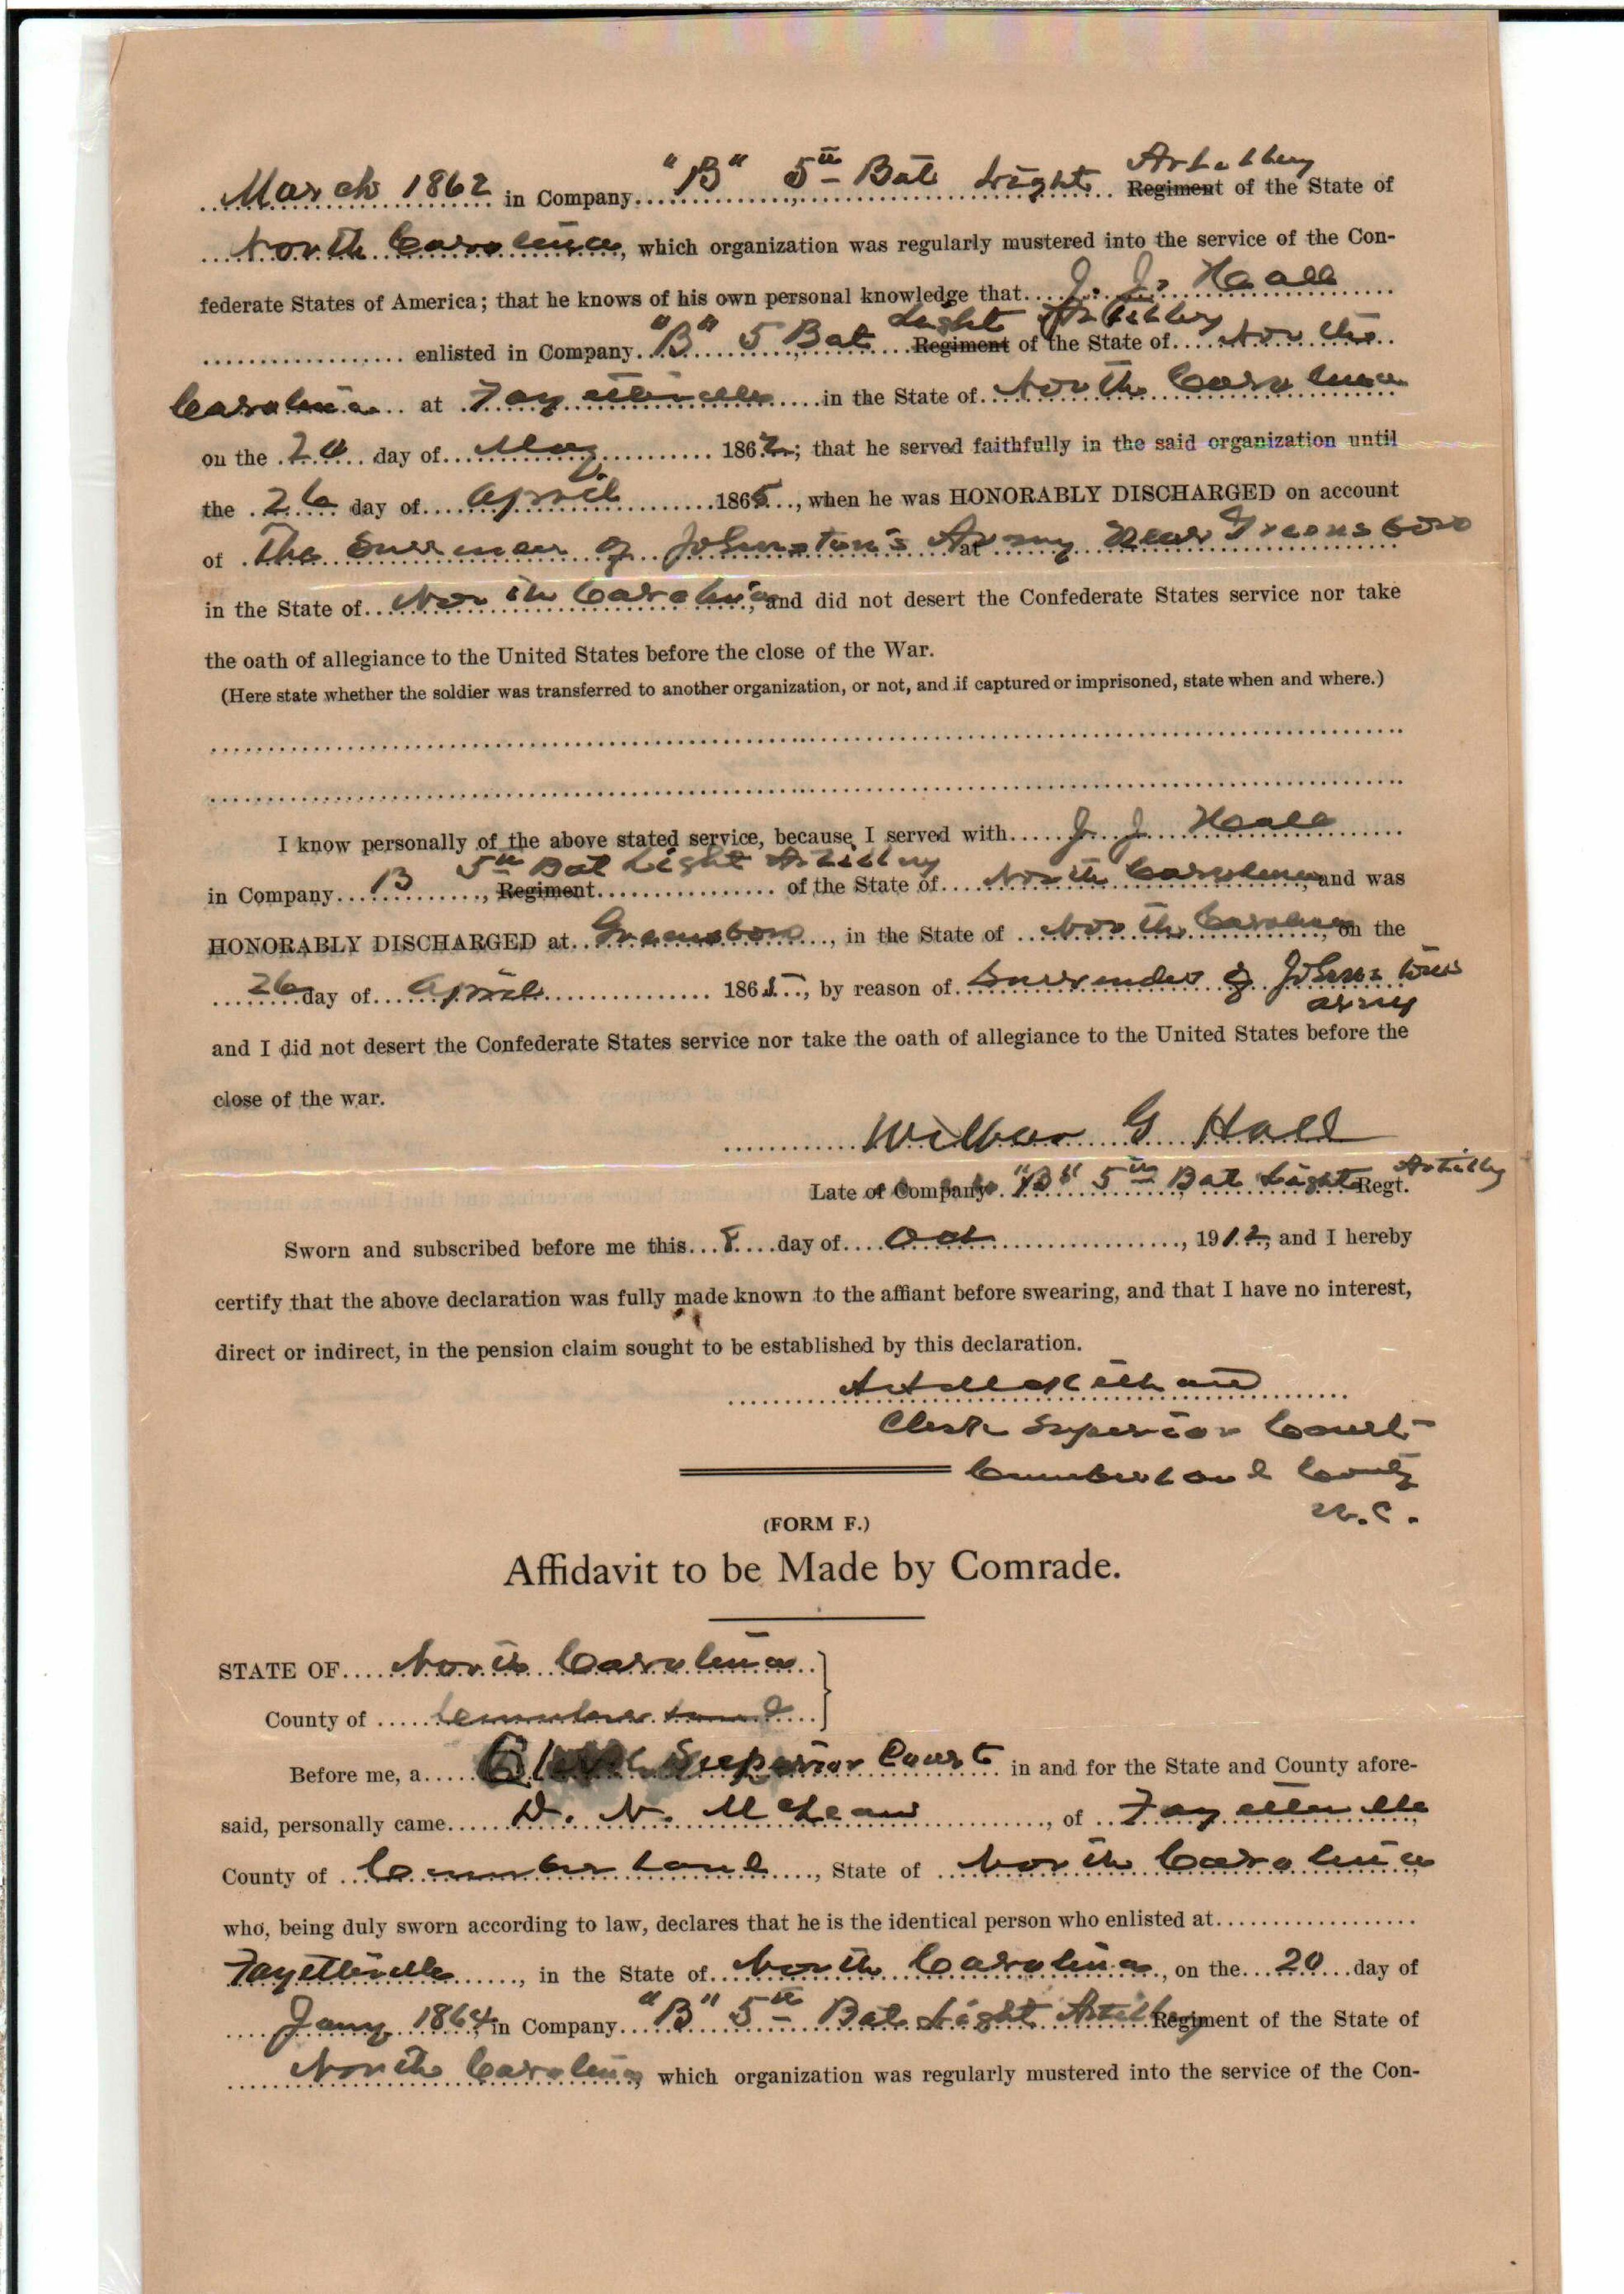 March 1862 in Company "B" 5th Bat Light Artillery Regiment of the State of
North Carolina, which organization was regularly mustered into the service of the Con-
federate States of America; that he knows of his own personal knowledge that J. J. Hall
enlisted in Company "B" 5 Bat Light Artillery Regiment of the State of North
Carolina at Fayetteville in the State of North Carolina
on the 20 day of May 1862; that he served faithfully in the said organization until
the 26 day of April 1865, when he was HONORABLY DISCHARGED on account
of The Surrender of Johnston's Army at near Greensboro
in the State of North Carolina, and did not desert the Confederate States service nor take
the oath of allegiance to the United States before the close of the War.
(Here state whether the soldier was transferred to another organization, or not, and if captured or imprisoned, state when and where.)
I know personally of the above stated service, because I served with J. J. Hall
in Company B, 5th Bat Light Artillery Regiment of the State of North Carolina, and was
HONORABLY DISCHARGED at Greensboro, in the State of North Carolina, on the
26 day of April 1865, by reason of Surrender of Johnstons
army
and I did not desert the Confederate States service nor take the oath of allegiance to the United States before the
close of the war.
G Hall
Late of Company "B" 5th Bat Light Artillery Regt.
Sworn and subscribed before me this 8 day of Oct, 1912, and I hereby
certify that the above declaration was fully made known to the affiant before swearing, and that I have no interest,
direct or indirect, in the pension claim sought to be established by this declaration.
Clerk Superior Court
Cumberland County
N.C.
(FORM F.)
Affidavit to be Made by Comrade.
STATE OF North Carolina
County of Cumberland
Before me, a Clerk Superior Court in and for the State and County afore-
said, personally came D. N. McLean, of Fayetteville
County of Cumberland, State of North Carolina
who, being duly sworn according to law, declares that he is the identical person who enlisted at
Fayetteville, in the State of North Carolina, on the 20 day of
Jany 1864, in Company "B" 5th Bat Light Artillery Regiment of the State of
North Carolina, which organization was regularly mustered into the service of the Con-